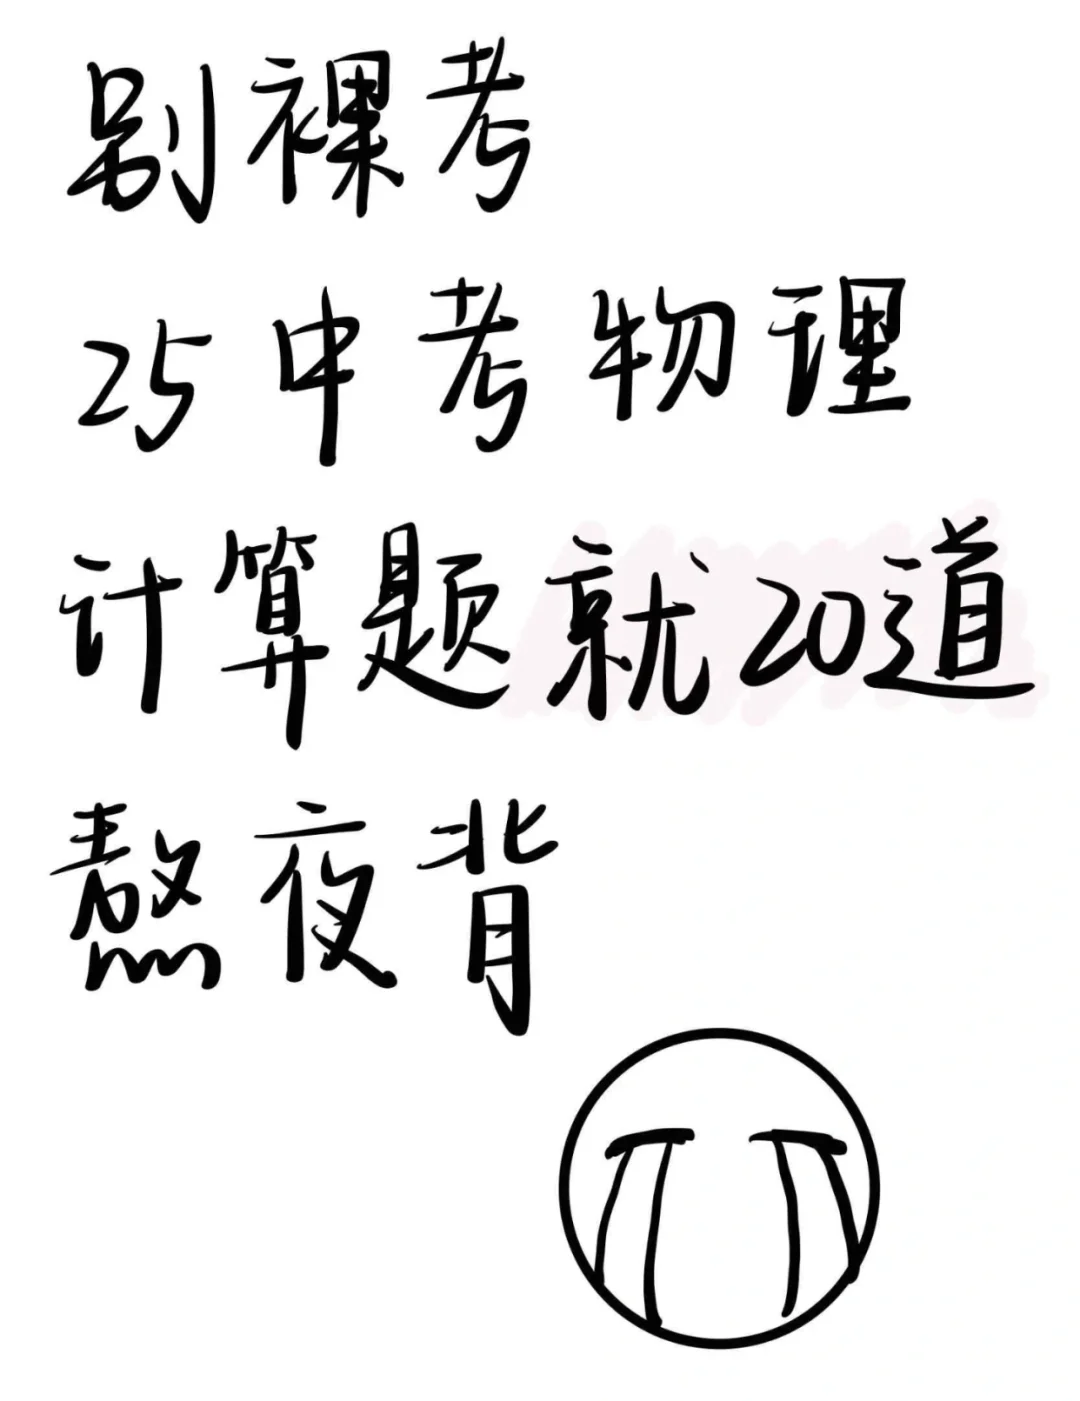 别裸考
25中考物理
计算题就20道
熬夜背